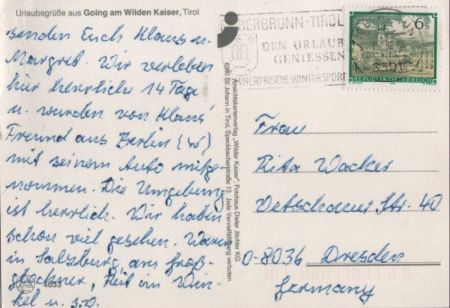 Urlaubsgrüße aus Going am Wilden Kaiser, Tirol
senden Euch Klaus u.
Margret. Wir verleben
hier herrliche 14 Tage
u. wurden von Klaus'
Freund aus Berlin (W)
mit seinem Auto mitge-
nommen. Die Umgebung
ist herrlich. Wir haben
schon viel gesehen. Waren
in Salzburg, am Groß-
glockner, Reit im Win-
kel u. s.w.
4633
Ansichtskartenverlag „Wilder Kaiser“, Fotohaus Dieter Jöchler KG
6380 St. Johann in Tirol, Speckbacherstraße 12. Jede Vervielfältigung verboten
BERBRUNN-TIROL
DEN URLAUB
GENIESSEN
WINTERSPORT
6s
REPUBLIK ÖSTERREICH
Frau
Rita Wacker
Str. 40
O-8036 Dresden
Germany